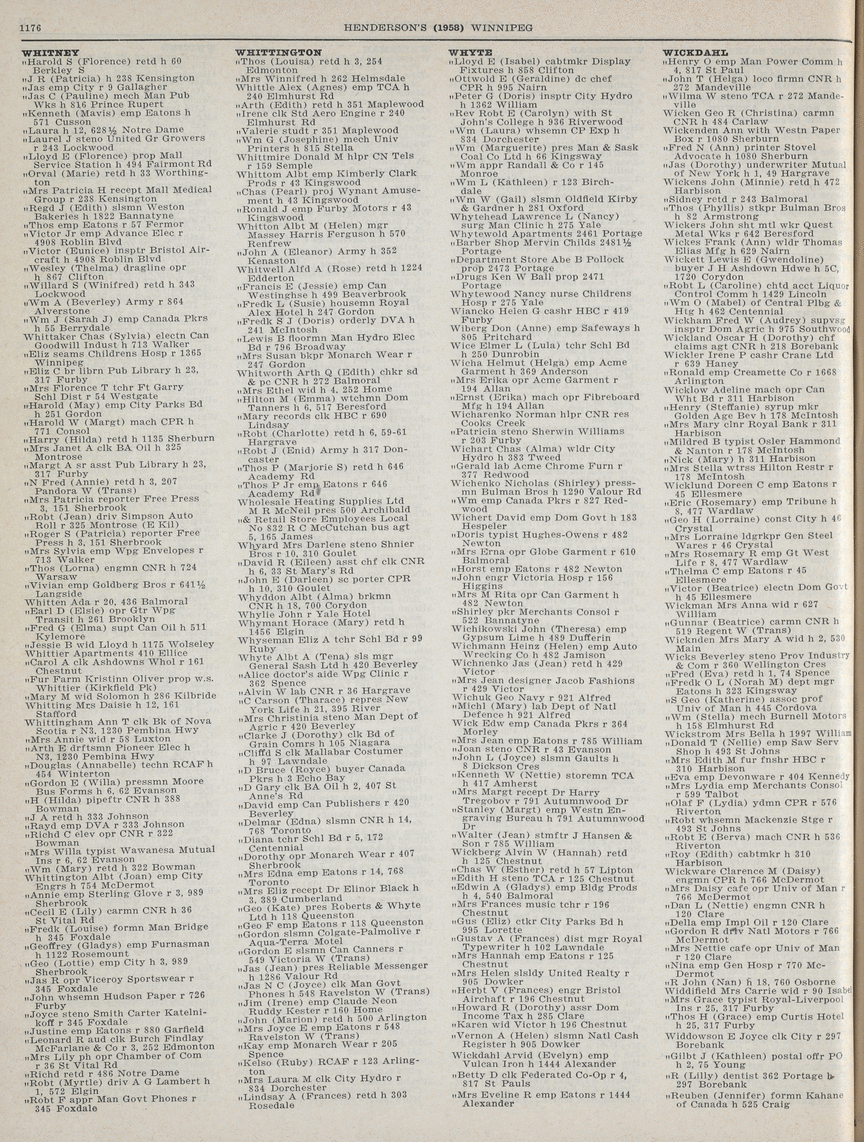 1176
HENDERSON'S (1958) WINNIPEG
WHITNEY
"Harold S (Florence) retd h 60
Berkley S
"J R (Patricia) h 238 Kensington
"Jas emp City r 9 Gallagher
"Jas C (Pauline) mech Man Pub
Wks h 816 Prince Rupert
"Kenneth (Mavis) emp Eatons h
571 Cusson
"Laura h 12, 628½ Notre Dame
"Laurel J steno United Gr Growers
r 243 Lockwood
"Lloyd E (Florence) prop Mall
Service Station h 494 Fairmont Rd
"Orval (Marie) retd h 33 Worthing-
ton
"Mrs Patricia H recept Mall Medical
Group r 238 Kensington
"Regd J (Edith) slsmn Weston
Bakeries h 1822 Bannatyne
"Thos emp Eatons r 57 Fermor
"Victor Jr emp Advance Elec r
4908 Roblin Blvd
"Victor (Eunice) insptr Bristol Air-
craft h 4908 Roblin Blvd
"Wesley (Thelma) dragline opr
h 867 Clifton
"Willard S (Winifred) retd h 343
Lockwood
"Wm A (Beverley) Army r 864
Alverstone
"Wm J (Sarah J) emp Canada Pkrs
h 55 Berrydale
Whittaker Chas (Sylvia) electn Can
Goodwill Indust h 713 Walker
"Eliz seams Childrens Hosp r 1365
Winnipeg
"Eliz C br librn Pub Library h 23,
317 Furby
"Mrs Florence T tchr Ft Garry
Schl Dist r 54 Westgate
"Harold (May) emp City Parks Bd
h 251 Gordon
"Harold W (Margt) mach CPR h
771 Consol
"Harry (Hilda) retd h 1135 Sherburn
"Mrs Janet A clk BA Oil h 325
Montrose
"Margt A sr asst Pub Library h 23,
317 Furby
"N Fred (Annie) retd h 3, 207
Pandora W (Trans)
"Mrs Patricia reporter Free Press
3, 151 Sherbrook
"Robt (Jean) driv Simplex Auto
Roll r 325 Montrose (E Kil)
"Roger S (Patricia) reporter Free
Press h 3, 151 Sherbrook
"Mrs Sylvia emp Wpg Envelopes r
713 Walker
"Thos (Lorna) engmn CNR h 724
Warsaw
"Vivian emp Goldberg Bros r 641½
Langside
Whitten Ada r 20, 436 Balmoral
"Earl D (Elsie) opr Gtr Wpg
Transit h 261 Brooklyn
"Fred G (Elma) supt Can Oil h 511
Kylemore
"Jessie B wid Lloyd h 1175 Wolseley
Whittier Apartments 410 Ellice
"Carol A clk Ashdowns Whol r 161
Chestnut
"Fur Farm Kristinn Oliver prop w.s.
Whittier (Kirkfield Pk)
"Mary M wid Solomon h 286 Kilbride
Whitting Mrs Daisie h 12, 161
Stafford
Whittingham Ann T clk Bk of Nova
Scotia r N3, 1230 Pembina Hwy
"Mrs Annie wid r 58 Luxton
"Arth E drftsmn Pioneer Elec h
N3, 1230 Pembina Hwy
"Douglas (Annabelle) techn RCAF h
454 Winterton
"Gordon E (Willa) pressmn Moore
Bus Forms h 6, 62 Evanson
"H (Hilda) pipeftr CNR h 388
Bowman
"J A retd h 333 Johnson
"Rayd emp DVA r 333 Johnson
"Richd C elev opr CNR r 322
Bowman
"Mrs Willa typist Wawanesa Mutual
Ins r 6, 62 Evanson
"Wm (Mary) retd h 322 Bowman
Whittington Albt (Joan) emp City
Engrs h 754 McDermot
"Annie emp Sterling Glove r 3, 989
Sherbrook
"Cecil E (Lily) carmn CNR h 36
St Vital Rd
"Fredk (Louise) formn Man Bridge
h 345 Foxdale
"Geoffrey (Gladys) emp Furnasman
h 1122 Rosemount
"Geo (Lottie) emp City h 3, 989
Sherbrook
"Jas R opr Viceroy Sportswear r
345 Foxdale
"John whsemn Hudson Paper r 726
Furby
"Joyce steno Smith Carter Katelni-
koff r 345 Foxdale
"Justine emp Eatons r 880 Garfield
"Leonard R aud clk Burch Findlay
McFarlane & Co r 3, 252 Edmonton
"Mrs Lily ph opr Chamber of Com
r 36 St Vital Rd
"Richd retd r 486 Notre Dame
"Robt (Myrtle) driv A G Lambert h
1, 572 Elgin
"Robt F appr Man Govt Phones r
345 Foxdale
WHITTINGTON
"Thos (Louisa) retd h 3, 254
Edmonton
"Mrs Winnifred h 262 Helmsdale
Whittle Alex (Agnes) emp TCA h
240 Elmhurst Rd
"Arth (Edith) retd h 351 Maplewood
"Irene clk Std Aero Engine r 240
Elmhurst Rd
"Valerie studt r 351 Maplewood
"Wm G (Josephine) mech Univ
Printers h 815 Stella
Whittmire Donald M hlpr CN Tels
r 159 Semple
Whittom Albt emp Kimberly Clark
Prods r 43 Kingswood
"Chas (Pearl) proj Wynant Amuse-
ment h 43 Kingswood
"Ronald J emp Furby Motors r 43
Kingswood
Whitton Albt M (Helen) mgr
Massey Harris Ferguson h 570
Renfrew
"John A (Eleanor) Army h 352
Kenaston
Whitwell Alfd A (Rose) retd h 1224
Edderton
"Francis E (Jessie) emp Can
Westinghse h 499 Beaverbrook
"Fredk L (Susie) housemn Royal
Alex Hotel h 247 Gordon
"Fredk S J (Doris) orderly DVA h
241 McIntosh
"Lewis B floormn Man Hydro Elec
Bd r 796 Broadway
"Mrs Susan bkpr Monarch Wear r
247 Gordon
Whitworth Arth Q (Edith) chkr sd
& pc CNR h 272 Balmoral
"Mrs Ethel wid h 4, 252 Home
"Hilton M (Emma) wtchmn Dom
Tanners h 6, 517 Beresford
"Mary records clk HBC r 690
Lindsay
"Robt (Charlotte) retd h 6, 59-61
Hargrave
"Robt J (Enid) Army h 317 Don-
caster
"Thos P (Marjorie S) retd h 646
Academy Rd
"Thos P Jr emp Eatons r 646
Academy Rd
Wholesale Heating Supplies Ltd
M R McNeil pres 500 Archibald
"& Retail Store Employees Local
No 832 R C McCutchan bus agt
5, 165 James
Whyard Mrs Darlene steno Shnier
Bros r 10, 310 Goulet
"David R (Eileen) asst chf clk CNR
h 6, 33 St Mary's Rd
"John E (Darleen) sc porter CPR
h 10, 310 Goulet
Whyddon Albt (Alma) brkmn
CNR h 18, 700 Corydon
Whylie John r Yale Hotel
Whynant Horace (Mary) retd h
1456 Elgin
Whyseman Eliz A tchr Schl Bd r 99
Ruby
Whyte Albt A (Tena) sls mgr
General Sash Ltd h 420 Beverley
"Alice doctor's aide Wpg Clinic r
362 Spence
"Alvin W lab CNR r 36 Hargrave
"C Carson (Tharace) repres New
York Life h 21, 395 River
"Mrs Christinia steno Man Dept of
Agric r 420 Beverley
"Clarke J (Dorothy) clk Bd of
Grain Comrs h 105 Niagara
"Cliffd S clk Mallabar Costumer
h 97 Lawndale
"D Bruce (Royce) buyer Canada
Pkrs h 3 Echo Bay
"D Gary clk BA Oil h 2, 407 St
Anne's Rd
"David emp Can Publishers r 420
Beverley
"Delmar (Edna) slsmn CNR h 14,
768 Toronto
"Diana tchr Schl Bd r 5, 172
Centennial
"Dorothy opr Monarch Wear r 407
Sherbrook
"Mrs Edna emp Eatons r 14, 768
Toronto
"Mrs Eliz recept Dr Elinor Black h
3, 389 Cumberland
"Geo (Kate) pres Roberts & Whyte
Ltd h 118 Queenston
"Geo F emp Eatons r 118 Queenston
"Gordon slsmn Colgate-Palmolive r
Aqua-Terra Motel
"Gordon E slsmn Can Canners r
549 Victoria W (Trans)
"Jas (Jean) pres Reliable Messenger
h 1286 Valour Rd
"Jas N C (Joyce) clk Man Govt
Phones h 548 Ravelston W (Trans)
"Jim (Irene) emp Claude Neon
Ruddy Kester r 160 Home
"John (Marion) retd h 500 Arlington
"Mrs Joyce E emp Eatons r 548
Ravelston W (Trans)
"Kay emp Monarch Wear r 205
Spence
"Kelso (Ruby) RCAF r 123 Arling-
ton
"Mrs Laura M clk City Hydro r
834 Dorchester
"Lindsay A (Frances) retd h 303
Rosedale
WHYTE
"Lloyd E (Isabel) cabtmkr Display
Fixtures h 858 Clifton
"Ottwold E (Geraldine) dc chef
CPR h 995 Nairn
"Peter G (Doris) insptr City Hydro
h 1362 William
"Rev Robt E (Carolyn) with St
John's College h 936 Riverwood
"Wm (Laura) whsemn CP Exp h
834 Dorchester
"Wm (Marguerite) pres Man & Sask
Coal Co Ltd h 66 Kingsway
"Wm appr Randall & Co r 145
Monroe
"Wm L (Kathleen) r 123 Birch-
dale
"Wm W (Gail) slsmn Oldfield Kirby
& Gardner h 281 Oxford
Whytehead Lawrence L (Nancy)
surg Man Clinic h 275 Yale
Whytewold Apartments 2461 Portage
"Barber Shop Mervin Childs 2481½
Portage
"Department Store Abe B Pollock
prop 2473 Portage
"Drugs Ken W Ball prop 2471
Portage
Whytewood Nancy nurse Childrens
Hosp r 275 Yale
Wiancko Helen G cashr HBC r 419
Furby
Wiberg Don (Anne) emp Safeways h
805 Pritchard
Wice Elmer L (Lula) tchr Schl Bd
h 250 Dunrobin
Wicha Helmut (Helga) emp Acme
Garment h 369 Anderson
"Mrs Erika opr Acme Garment r
194 Allan
"Ernst (Erika) mach opr Fibreboard
Mfg h 194 Allan
Wicharenko Norman hlpr CNR res
Cooks Creek
"Patricia steno Sherwin Williams
r 203 Furby
Wichart Chas (Alma) wldr City
Hydro h 383 Tweed
"Gerald lab Acme Chrome Furn r
377 Redwood
Wichenko Nicholas (Shirley) press-
mn Bulman Bros h 1290 Valour Rd
"Wm emp Canada Pkrs r 827 Red-
wood
Wichert David emp Dom Govt h 183
Hespeler
"Doris typist Hughes-Owens r 482
Newton
"Mrs Erna opr Globe Garment r 610
Balmoral
"Horst emp Eatons r 482 Newton
"John engr Victoria Hosp r 156
Higgins
"Mrs M Rita opr Can Garment h
482 Newton
"Shirley pkr Merchants Consol r
522 Bannatyne
Wichikowski John (Theresa) emp
Gypsum Lime h 489 Dufferin
Wichmann Heinz (Helen) emp Auto
Wrecking Co h 482 Jamison
Wichnenko Jas (Jean) retd h 429
Victor
"Mrs Jean designer Jacob Fashions
r 429 Victor
Wichuk Geo Navy r 921 Alfred
"Michl (Mary) lab Dept of Natl
Defence h 921 Alfred
Wick Edw emp Canada Pkrs r 364
Morley
"Mrs Jean emp Eatons r 785 William
"Joan steno CNR r 43 Evanson
"John L (Joyce) slsmn Gaults h
8 Dickson Cres
"Kenneth W (Nettie) storemn TCA
h 417 Amherst
"Mrs Margt recept Dr Harry
Tregobov r 791 Autumnwood Dr
"Stanley (Margt) emp Westn En-
graving Bureau h 791 Autumnwood
Dr
"Walter (Jean) stmftr J Hansen &
Son r 785 William
Wickberg Alvin W (Hannah) retd
h 125 Chestnut
"Chas W (Esther) retd h 57 Lipton
"Edith H steno TCA r 125 Chestnut
"Edwin A (Gladys) emp Bldg Prods
h 4, 540 Balmoral
"Mrs Frances music tchr r 196
Chestnut
"Gus (Eliz) ctkr City Parks Bd h
995 Lorette
"Gustav A (Frances) dist mgr Royal
Typewriter h 102 Lawndale
"Mrs Hannah emp Eatons r 125
Chestnut
"Mrs Helen slsldy United Realty r
905 Dowker
"Herbt V (Frances) engr Bristol
Aircraft r 196 Chestnut
"Howard R (Dorothy) assr Dom
Income Tax h 285 Clare
"Karen wid Victor h 196 Chestnut
"Vernon A (Helen) slsmn Natl Cash
Register h 905 Dowker
Wickdahl Arvid (Evelyn) emp
Vulcan Iron h 1444 Alexander
"Betty D clk Federated Co-Op r 4,
817 St Pauls
"Mrs Eveline R emp Eatons r 1444
Alexander
WICKDAHL
"Henry O emp Man Power Comm h
4, 817 St Paul
"John T (Helga) loco firmn CNR h
272 Mandeville
"Wilma W steno TCA r 272 Mande-
ville
Wicken Geo R (Christina) carmn
CNR h 484 Carlaw
Wickenden Ann with Westn Paper
Box r 1080 Sherburn
"Fred N (Ann) printer Stovel
Advocate h 1080 Sherburn
"Jas (Dorothy) underwriter Mutual
of New York h 1, 49 Hargrave
Wickens John (Minnie) retd h 472
Harbison
"Sidney retd r 243 Balmoral
"Thos (Phyllis) stkpr Bulman Bros
h 82 Armstrong
Wickers John sht mtl wkr Quest
Metal Wks r 642 Beresford
Wickes Frank (Ann) wldr Thomas
Elias Mfg h 629 Nairn
Wickett Lewis E (Gwendoline)
buyer J H Ashdown Hdwe h 5C,
1720 Corydon
"Robt L (Caroline) chtd acct Liquor
Control Comm h 1429 Lincoln
"Wm O (Mabel) of Central Plbg &
Htg h 462 Centennial
Wickham Fred W (Audrey) supvsg
insptr Dom Agric h 975 Southwood
Wickland Oscar H (Dorothy) chf
claims agt CNR h 218 Borebank
Wickler Irene P cashr Crane Ltd
r 639 Haney
"Ronald emp Creamette Co r 1668
Arlington
Wicklow Adeline mach opr Can
Wht Bd r 311 Harbison
"Henry (Steffanie) syrup mkr
Golden Age Bev h 178 McIntosh
"Mrs Mary clnr Royal Bank r 311
Harbison
"Mildred B typist Osler Hammond
& Nanton r 178 McIntosh
"Nick (Mary) h 311 Harbison
"Mrs Stella wtrss Hilton Restr r
178 McIntosh
Wicklund Doreen C emp Eatons r
45 Ellesmere
"Eric (Rosemary) emp Tribune h
8, 477 Wardlaw
"Geo H (Lorraine) const City h 46
Crystal
"Mrs Lorraine ldgrkpr Gen Steel
Wares r 46 Crystal
"Mrs Rosemary R emp Gt West
Life r 8, 477 Wardlaw
"Thelma C emp Eatons r 45
Ellesmere
"Victor (Beatrice) electn Dom Govt
h 45 Ellesmere
Wickman Mrs Anna wid r 627
William
"Gunnar (Beatrice) carmn CNR h
519 Regent W (Trans)
Wicknden Mrs Mary A wid h 2, 530
Main
Wicks Beverley steno Prov Industry
& Com r 360 Wellington Cres
"Fred (Eva) retd h 1, 74 Spence
"Fredk O L (Norah M) dept mgr
Eatons h 323 Kingsway
"S Geo (Katherine) assoc prof
Univ of Man h 445 Cordova
"Wm (Stella) mech Burnell Motors
h 158 Elmhurst Rd
Wickstrom Mrs Bella h 1997 William
"Donald T (Nellie) emp Saw Serv
Shop h 493 St Johns
"Mrs Edith M fur fnshr HBC r
310 Harbison
"Eva emp Devonware r 404 Kennedy
"Mrs Lydia emp Merchants Consol
r 599 Talbot
"Olaf F (Lydia) ydmn CPR r 576
Riverton
"Robt whsemn Mackenzie Stge r
493 St Johns
"Robt E (Berva) mach CNR h 536
Riverton
"Roy (Edith) cabtmkr h 310
Harbison
Wickware Clarence M (Daisy)
engmn CPR h 766 McDermot
"Mrs Daisy cafe opr Univ of Man r
766 McDermot
"Dan L (Nettie) engmn CNR h
120 Clare
"Della emp Impl Oil r 120 Clare
"Gordon R driv Natl Motors r 766
McDermot
"Mrs Nettie cafe opr Univ of Man
r 120 Clare
"Nina emp Gen Hosp r 770 Mc-
Dermot
"R John (Nan) fi 18, 760 Osborne
Widdifield Mrs Carrie wid r 90 Isabel
"Mrs Grace typist Royal-Liverpool
Ins r 25, 317 Furby
"Thos H (Grace) emp Curtis Hotel
h 25, 317 Furby
Widdowson E Joyce clk City r 297
Borebank
"Gilbt J (Kathleen) postal offr PO
h 2, 75 Young
"R (Lilly) dentist 362 Portage h
297 Borebank
"Reuben (Jennifer) formn Kahane
of Canada h 525 Craig